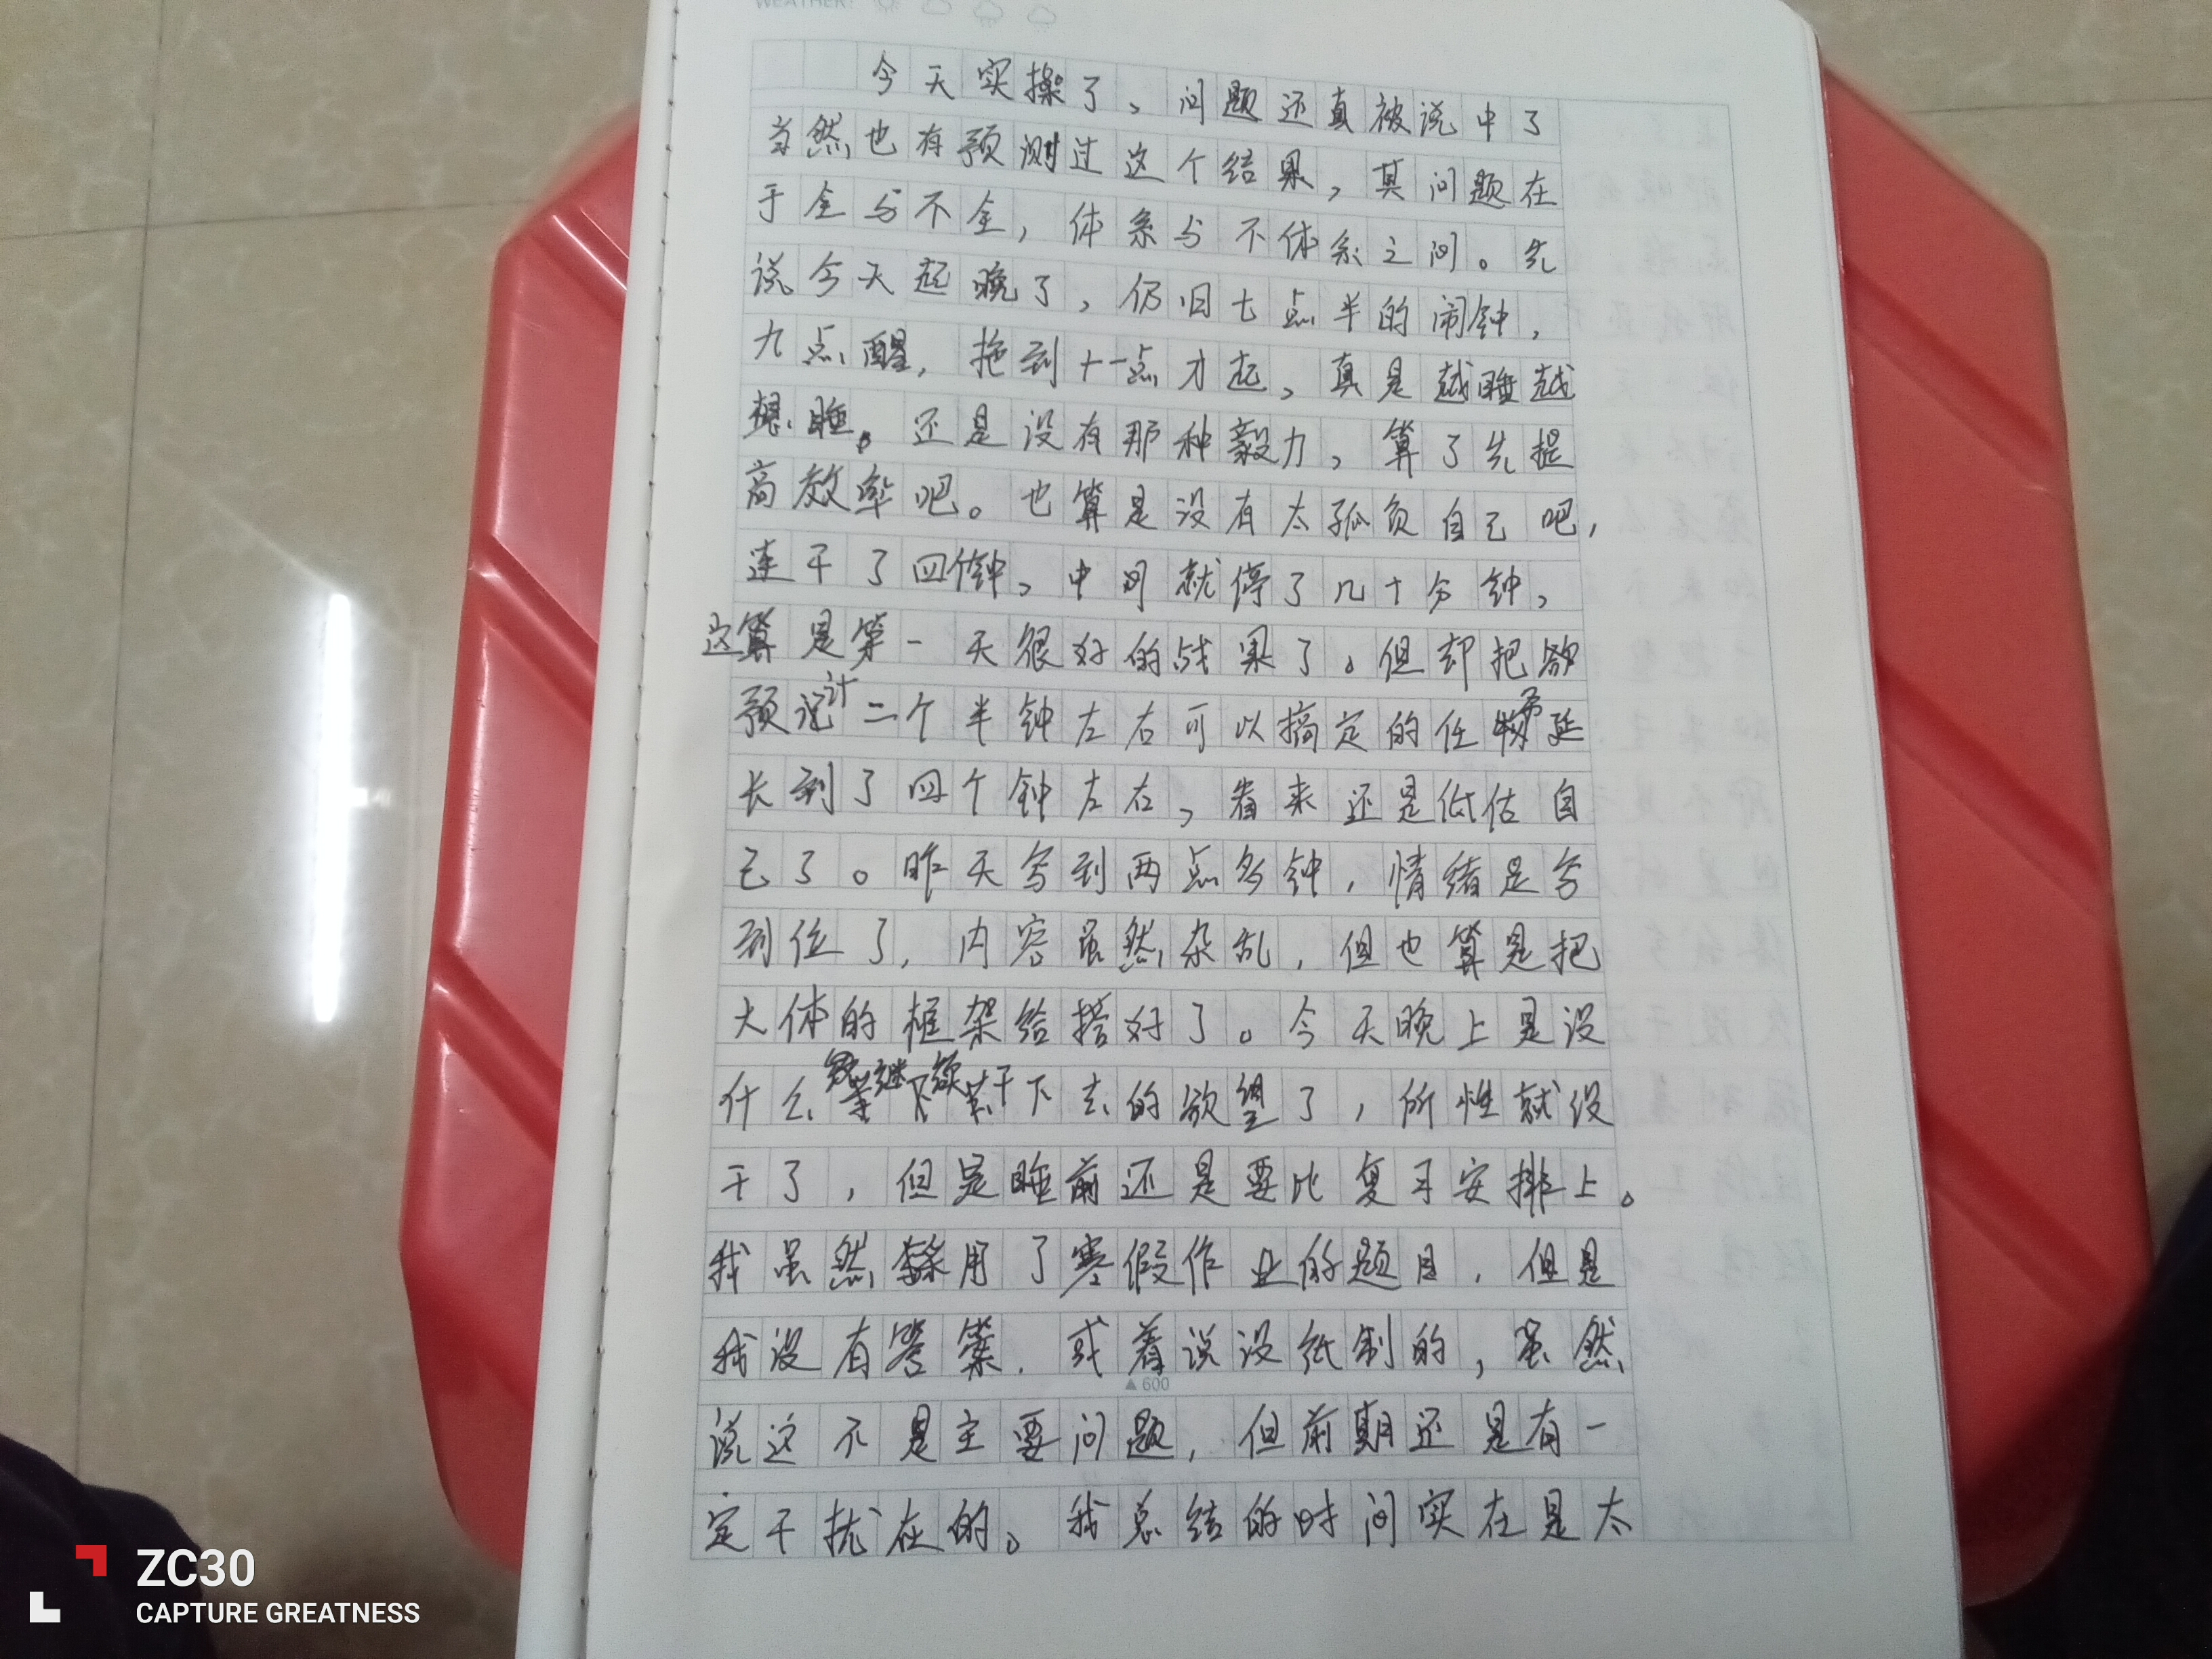 WEATHER:
今天实操了、问题还真被说中了
当然也有预测过这个结果，其问题在
于全与不全，体系与不体系之间。先
说今天起晚了，仍旧七点半的闹钟，
九点醒，拖到十一点才起，真是越睡越
想睡。还是没有那种毅力，算了先提
高效率吧。也算是没有太孤负自己吧，
连干了四个钟，中间就停了几十分钟，
这算是第一天很好的战果了。但却把
预计二个半钟左右可以搞定的任务延
长到了四个钟左右，看来还是低估自
己了。昨天写到两点多钟，情绪是写
到位了，内容虽然杂乱，但也算是把
大体的框架给搭好了。今天晚上是没
什么继续干下去的欲望了，所性就没
干了，但是睡前还是要比复习安排上。
我虽然用了寒假作业的题目，但是
我没有答案．或着说没纸制的，虽然
▲600
说这不是主要问题，但前期还是有一
定干扰在的。我总结的时间实在是太
ZC30
CAPTURE GREATNESS